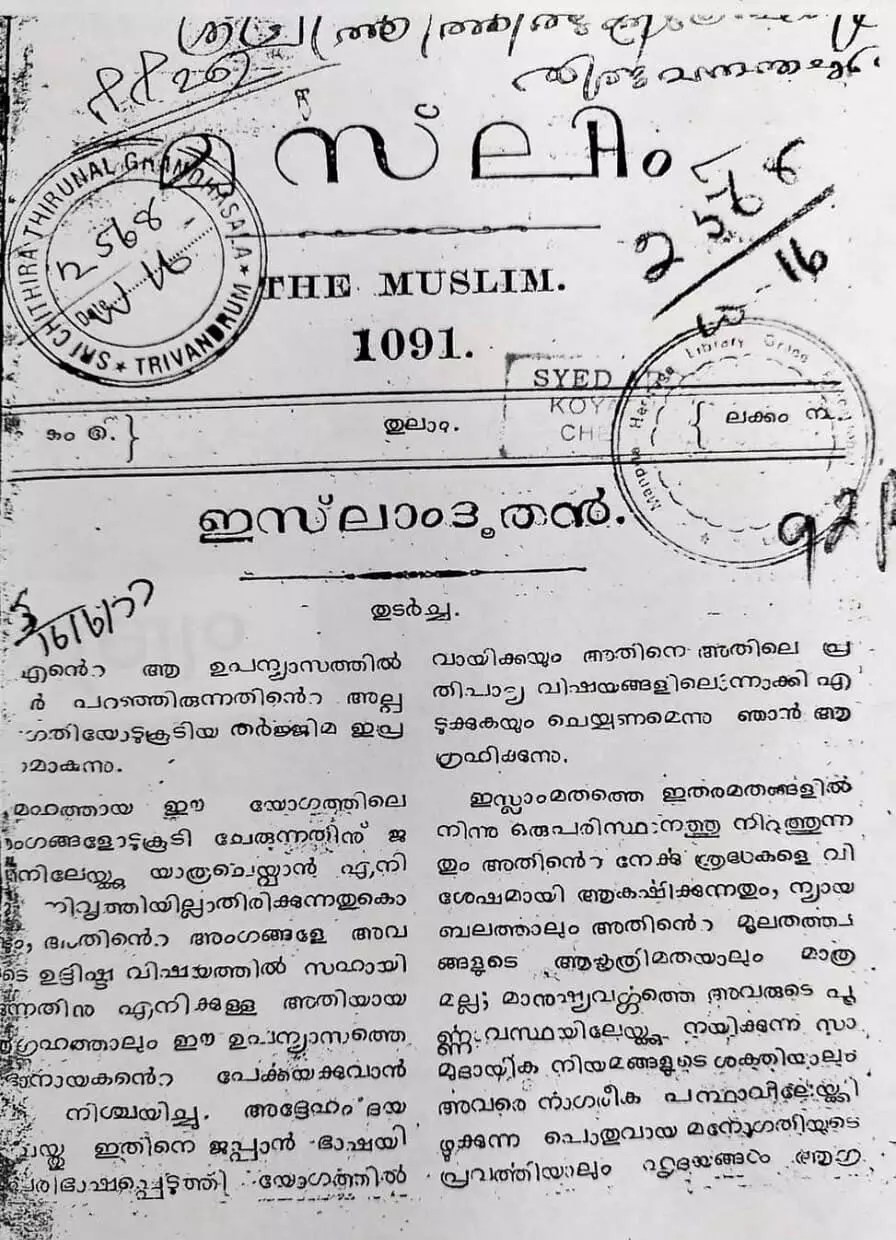 തിരുവനന്തപുരം
മുസ്‌ലിം
SRI CHITHIRA THIRUNAL GRANDHASALA
★ TRIVANDRUM ★
2568
Date
2568
16
THE MUSLIM.
1091.
SYED
KOYA
CHE
Library
തുലാം.
ലക്കം
ഇസ്‌ലാംദൂതൻ.
92
16/6/77
തുടർച്ച.
എന്റെ ആ ഉപന്യാസത്തിൽ
ർ പറഞ്ഞിരുന്നതിന്റെ അല്പ
ഗതിയോടുകൂടിയ തർജ്ജിമ ഇപ്ര
മാകുന്നു.
മഹത്തായ ഈ യോഗത്തിലെ
ംഗങ്ങളോടുകൂടി ചേരുന്നതിന്ന് ജ
നിലേയ്ക്കു യാത്രചെയ്വാൻ എനി
നിവൃത്തിയില്ലാതിരിക്കുന്നതുകൊ
അതിന്റെ അംഗങ്ങളേ അവ
ടെ ഉദ്ദിഷ്ട വിഷയത്തിൽ സഹായി
ന്നതിനു എനിക്കുള്ള അതിയായ
ഗ്രഹത്താലും ഈ ഉപന്യാസത്തെ
നായകന്റെ പേർക്കയക്കുവാൻ
നിശ്ചയിച്ചു. അദ്ദേഹം ദയ
ചെയ്തു ഇതിനെ ജപ്പാൻ ഭാഷയി
പരിഭാഷപ്പെടുത്തി യോഗത്തിൽ
വായിക്കയും അതിനെ അതിലെ പ്ര
തിപാദ്യ വിഷയങ്ങളിലൊന്നാക്കി എ
ടുക്കുകയും ചെയ്യണമെന്നു ഞാൻ ആ
ഗ്രഹിക്കുന്നു.
ഇസ്ലാംമതത്തെ ഇതരമതങ്ങളിൽ
നിന്നു ഒരുപരിസ്ഥാനത്തു നിറുത്തുന്ന
തും അതിന്റെ നേൎക്കു ശ്രദ്ധകളെ വി
ശേഷമായി ആകൎഷിക്കുന്നതും, ന്യായ
ബലത്താലും അതിന്റെ മൂലതത്ത്വ
ങ്ങളുടെ അകൃത്രിമതയാലും മാത്ര
മല്ല; മാനുഷ്യവൎഗ്ഗത്തെ അവരുടെ പൂ
ൎണ്ണാവസ്ഥയിലേയ്ക്കു നയിക്കുന്ന സാ
മുദായിക നിയമങ്ങളുടെ ശക്തിയാലും
അവരെ നാഗരീക പന്ഥാവിലേയ്ക്കി
ഴുക്കുന്ന പൊതുവായ മനോഗതിയുടെ
പ്രവൎത്തിയാലും ഹൃദയങ്ങൾ ആഗ്ര